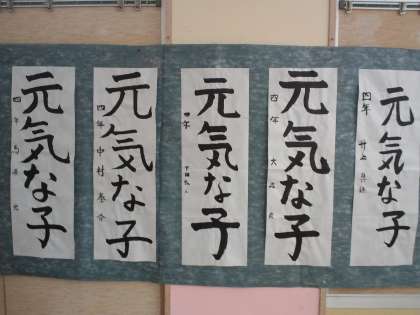 元気な子
四年 井上
元気な子
四年
元気な子
四年
元気な子
四年 中村
元気な子
四年